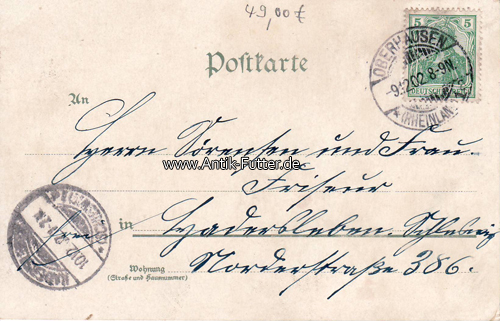 49,00 €
5 5
DEUTSCHES
OBERHAUSEN
-9.12.02. 8-9N.
(RHEINLAND)
Postkarte
An
Herrn Sörensen und Frau
www.Antik-Futter.de
Friseur
in Hadersleben. Schleswig
Wohnung
(Straße und Hausnummer)
Norderstraße 386.